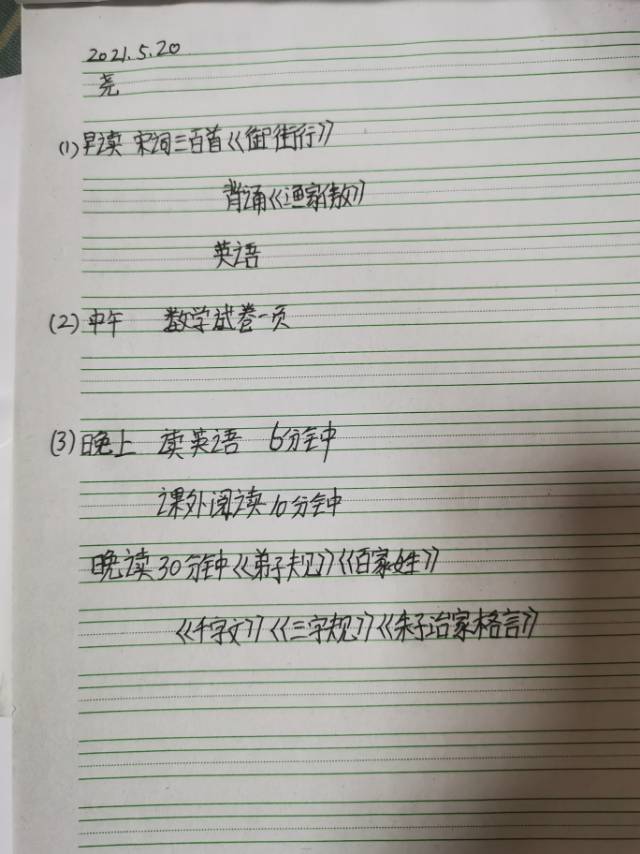 2021.5.20
尧
(1)早读 宋词三百首《御街行》
背诵《渔家傲》
英语
(2)中午 数学试卷一页
(3)晚上 读英语 6分钟
课外阅读10分钟
晚读30分钟《弟子规》《百家姓》
《千字文》《三字规》《朱子治家格言》